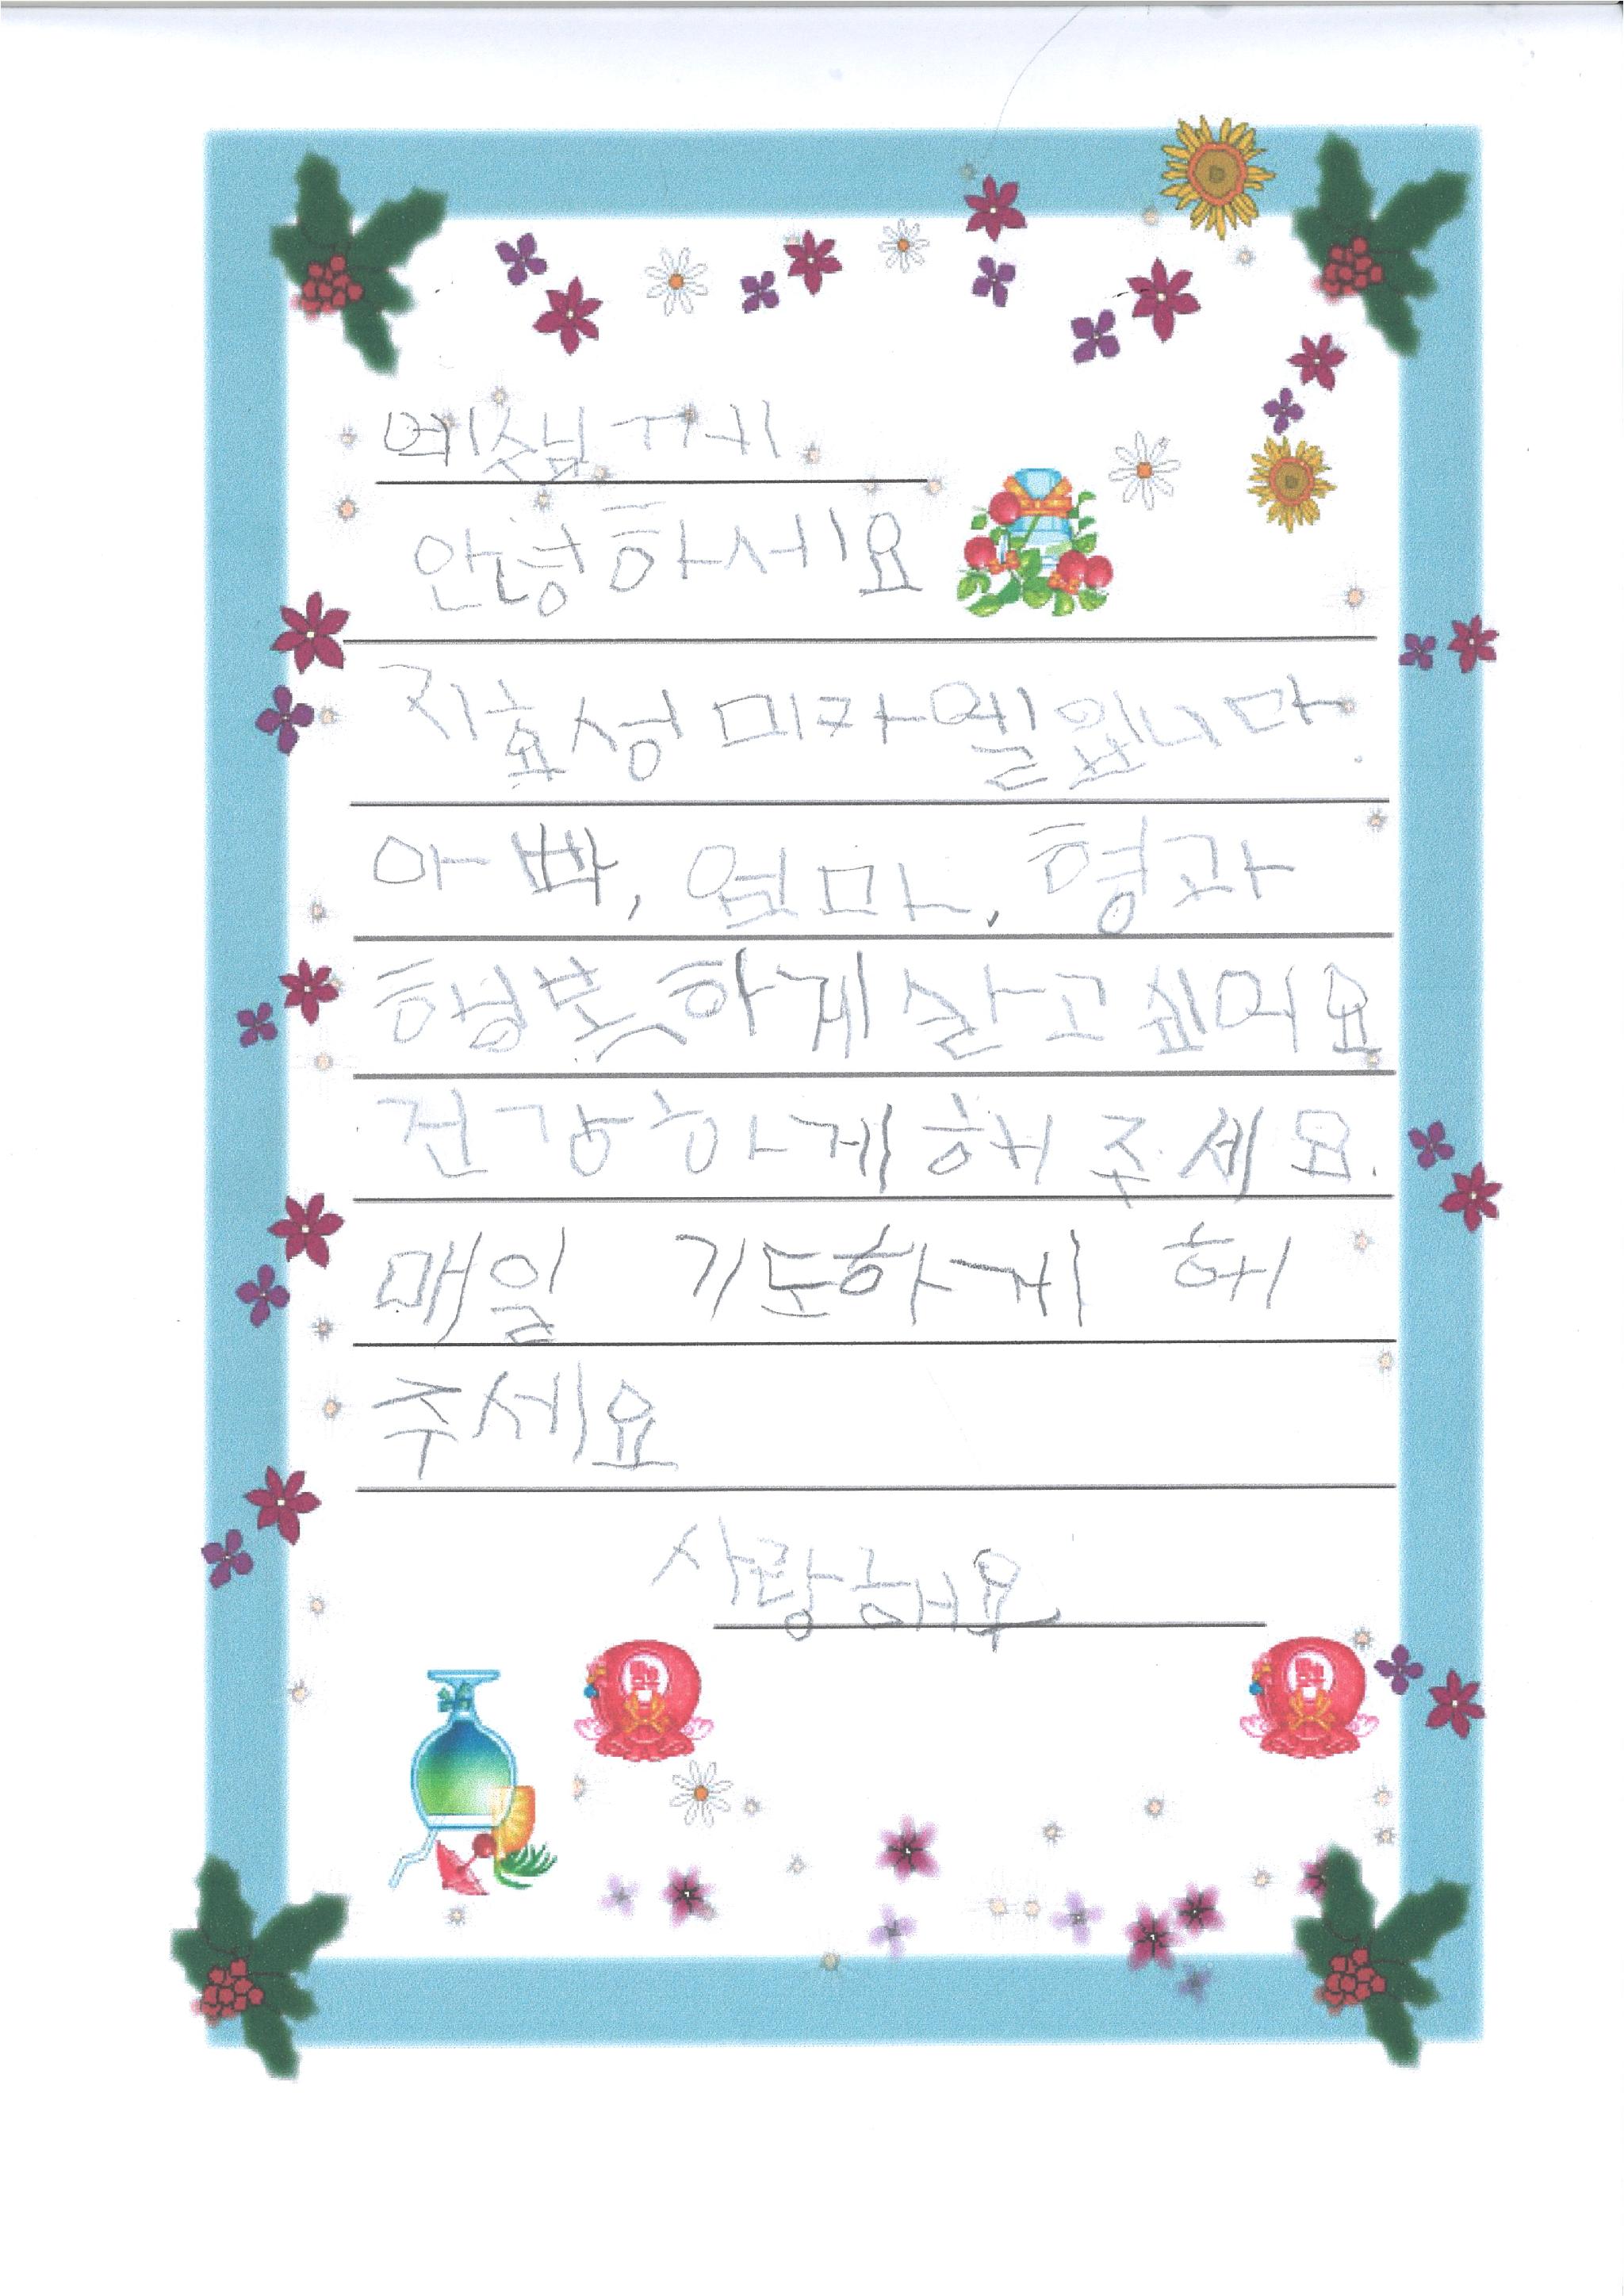 예수님 께
안녕하세요
지효성 미카엘입니다.
아빠, 엄마, 형과
행복하게 살고 싶어요
건강하게 해 주세요.
매일 기도하게 해
주세요
사랑해요